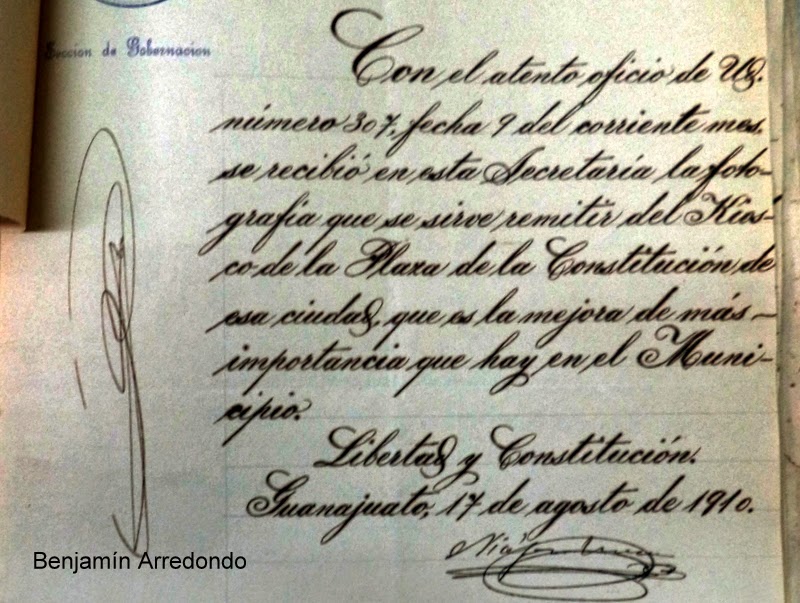 Seccion de Gobernacion
Con el atento oficio de Ud.
número 307, fecha 9 del corriente mes,
se recibió en esta Secretaría la foto-
grafia que se sirve remitir del Kios-
co de la Plaza de la Constitución de
esa ciudad, que es la mejora de más
importancia que hay en el Muni-
cipio.
Libertad y Constitución.
Guanajuato, 17 de agosto de 1910.
Benjamín Arredondo